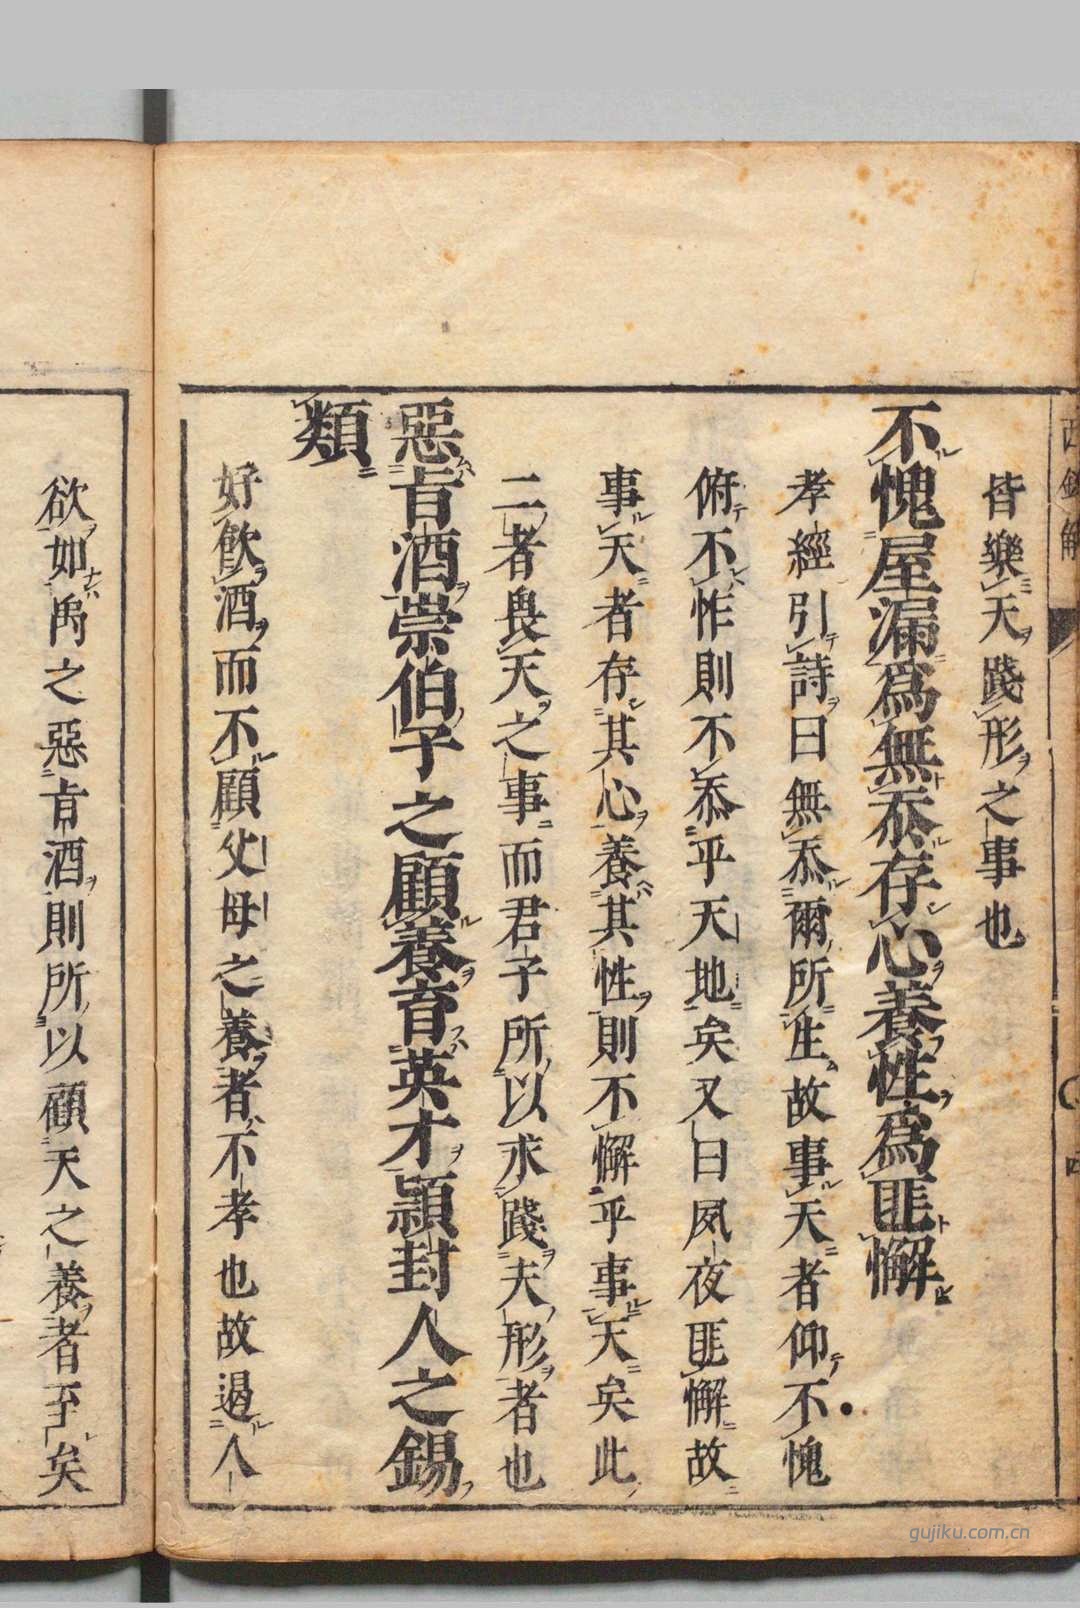 西銘解
皆樂天踐形之事也
不愧屋漏爲無忝存心養性爲匪懈
孝經引詩曰無忝爾所生故事天者仰不愧
俯不怍則不忝乎天地矣又曰夙夜匪懈故
事天者存其心養其性則不懈乎事天矣此
二者畏天之事而君子所以求踐夫形者也
惡旨酒崇伯子之顧養育英才頴封人之錫
類
好飲酒而不顧父母之養者不孝也故遏人
欲如禹之惡旨酒則所以顧天之養者至矣
gujiku.com.cn